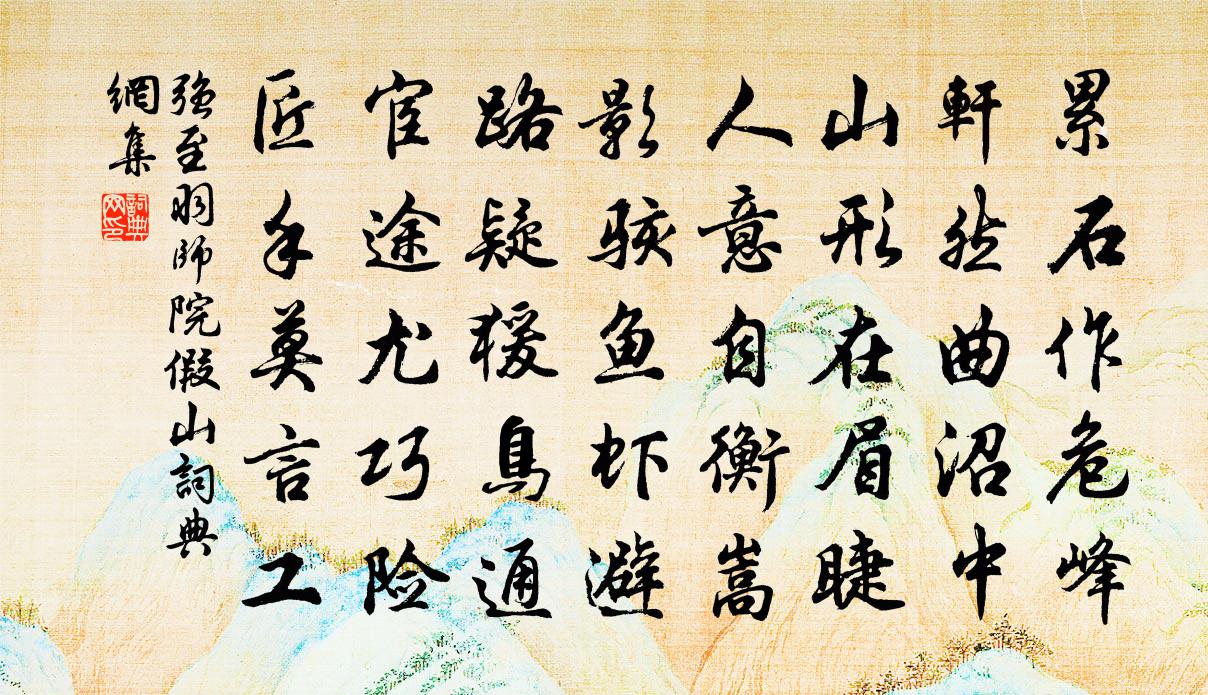 累石作危峰
軒然曲沼中
山形在眉睫
人意自衡嵩
影骇鱼虾避
路疑猨鳥通
宦途尤巧险
匠手莫言工
強至明師院假山詞典
網集
詞典
网印